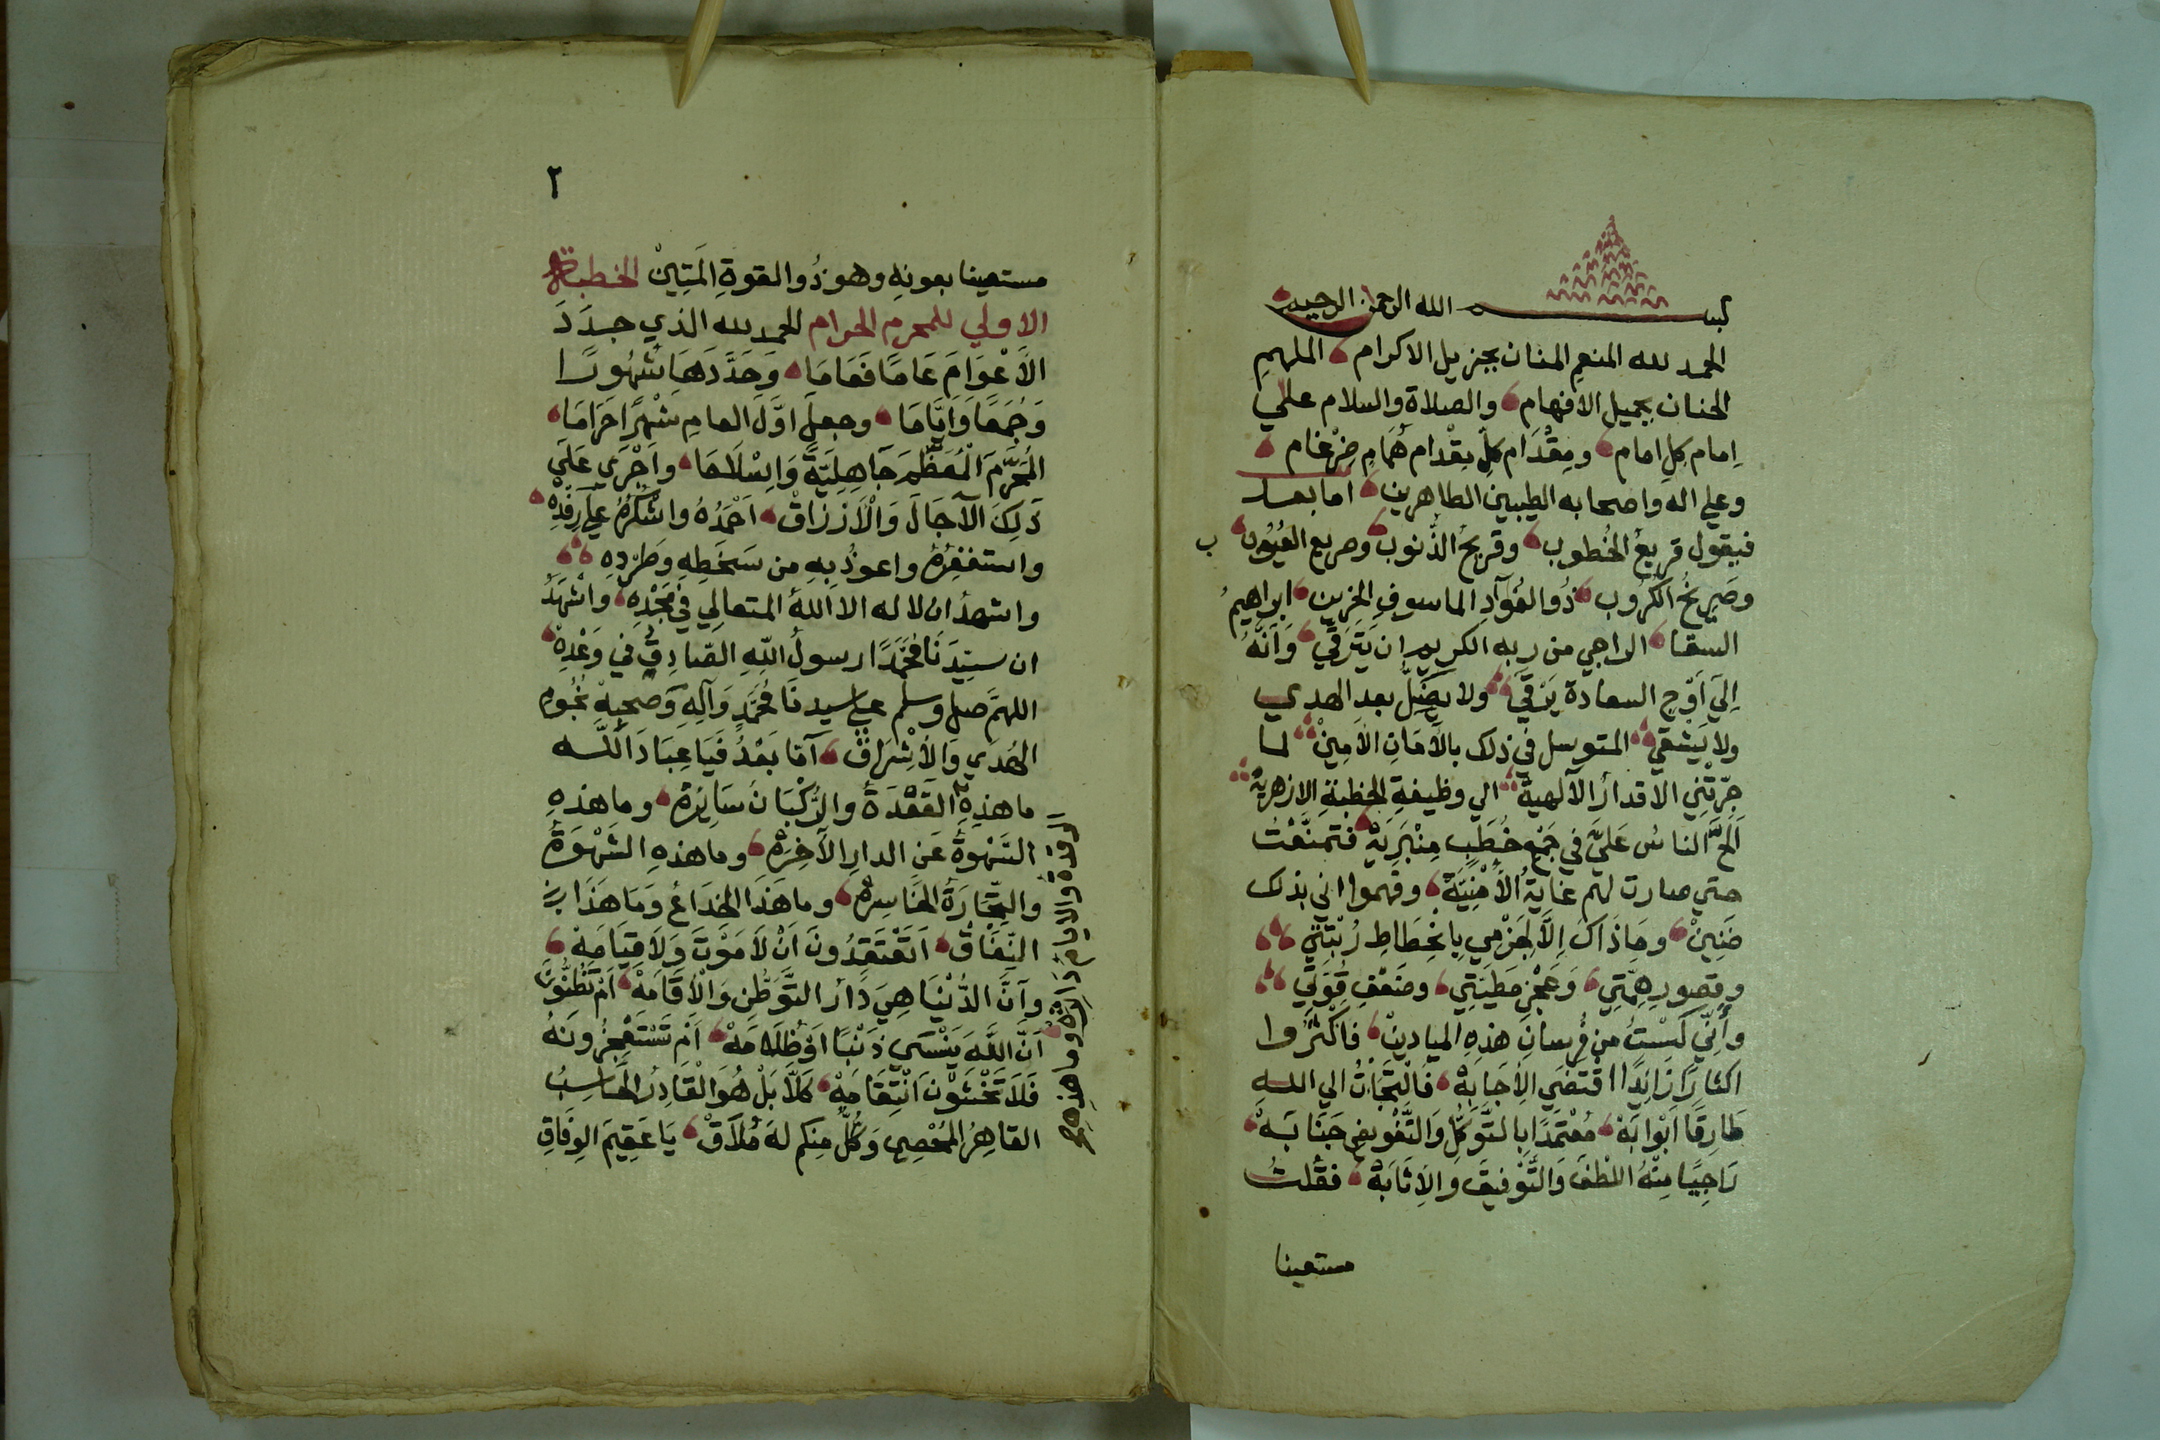 بسم الله الرحمن الرحيم
الحمد لله المنعم المنان بجزيل الاكرام الملهم
الجنان بجميل الافهام والصلاة والسلام علي
اِمام كلِ امام ومِقْدَام كلِّ مِقْدام هُمَامٍ ضِرْغام
وعلي اله واصحابه الطيبين الطاهرين اما بعد
فيقول قريعُ الخُطوب وقريحُ الذُّنوب وصريع العُيُوب
وصَرِيخُ الكُرُوب ذُو الفُوَآدِ الماسوفِ الحزين ابراهيمُ
السقا الراجي من ربه الكريم ان يَتَرَقَّي وَاَنَّهُ
اِليَ اَوْجِ السعادة يَرْقَي ولا يَضِلُّ بعد الهدي
ولا يَشقي المتوسل في ذلك بالاَمَانِ الاَمِينْ لما
جرّتْنِي الاقدارُ الآلهية الي وظيفةِ الخطبةِ الازهريةْ
اَلَحَّ الناسُ عَلَيَّ في جَمْعِ خُطَبٍ مِنْبَرِيَّةْ فتمنَّعْتُ
حتي صارت لهم غايةُ الاُمْنِيَّةْ وفهموا اني بذلك
ضَنِينْ ومَاذَاكَ اِلاَّ لِجَزْمِي بِانحِطَاطِ رُتْبَتِي
وقصورِ هِمَّتِي وَعَجْزِ مَطِيَّتِي وضَعْفِ قُوَّتِي
وأَنِّي لَسْتُ من فُرسانِ هذهِ الميادينْ فاكْثَرُوا
اكثارًا زَائِدًا اقْتضَي الاِجَابَةْ فَالْتَجَاْتُ الي الله
طَارِقًا اَبْوَابَهْ مُعْتَمَدًا بالتَّوَكُّلِ وَالتَّفْويضِ جَنَابَهْ
رَاجِيًا مِنْهُ اللُّطفَ وَالتَّوْفيقَ وَالاِثَابَةْ فقُلْتُ
مستعينا
٢
مستعينا بعونهِ وهو ذُو القوةِ المَتِينْ الخطبة
الاولي للمحرم الحرام الحمد لله الذي جدَّدَ
الاَعْوَامَ عَامًا فَعَامَا وَحَدَّدَهَا شُهُورًا
وَجُمَعًا وَاَيَّامَا وجعل اوَّلَ العامِ شهْرًا حَرَامَا
المُحَرَّمَ الْمُعَظَّمَ جَاهِلِيَّةً وَاِسْلاَمَا واَجْرَي عَلَيَ
ذَلِكَ الآجَالَ وَالْاَرْزَاقْ اَحْمَدُهُ واشْكُرُهُ عَلي رِفْدِهْ
واستغفِرُهُ واعوذُ بِهِ من سَخَطِهِ وَطَرْدِهِ
واشهدُ ان لا اله الا اللهُ المتعالِي في مَجْدِهْ واشْهَدُ
ان سيدَنَا مُحَمَّدًا رسولُ اللهِ الصَادِقُ في وَعْدِهْ
اللهمَّ صل وسلم علي سيدنَا مُحَمَّدٍ وَآلِهِ وَصحبِهِ نُجُومِ
الهُدَي وَالاِشْرَاقْ اَمَّا بَعْدُ فَيَا عِبَادَ اللَّه
ما هذهِ القَعْدَةُ والرُّكْبَانُ سَائِرَةْ وما هذهِ
الرقدة والايام دائرة وما هذه
السَّهْوةُ عَنِ الدارِ الآخِرَةْ وما هذهِ الشَهْوَةُ
والتِّجَارَةُ الخَاسِرَةْ وما هَذَا الخِدَاعُ وَمَا هَذَا
النِّفَاقْ اَتَعْتَقِدُونَ اَنْ لاَ مَوْتَ وَلاَ قِيَامَةْ
وَاَنَّ الدُّنْيَا هِيَ دَارُ التَّوَطُّنِ وَالْاِقَامَةْ اَمْ تَظُنُّونَ
اَنَّ اللَّهَ يَنْسَي ذَنْبًا اَوْ ظُلاَمَةْ اَمْ تَسْتَعْجِزُونَهُ
فَلاَ تَخْشَوْنَ انْتِقَامَهْ كَلاَّ بَلْ هُوَ الْقَادِرُ الْحَاسِبُ
القاهِرُ المُحْصِي وَكُلٌّ مِنكم لَهُ مُلاَقْ يَا عَقِيمَ الوِفَاقِ